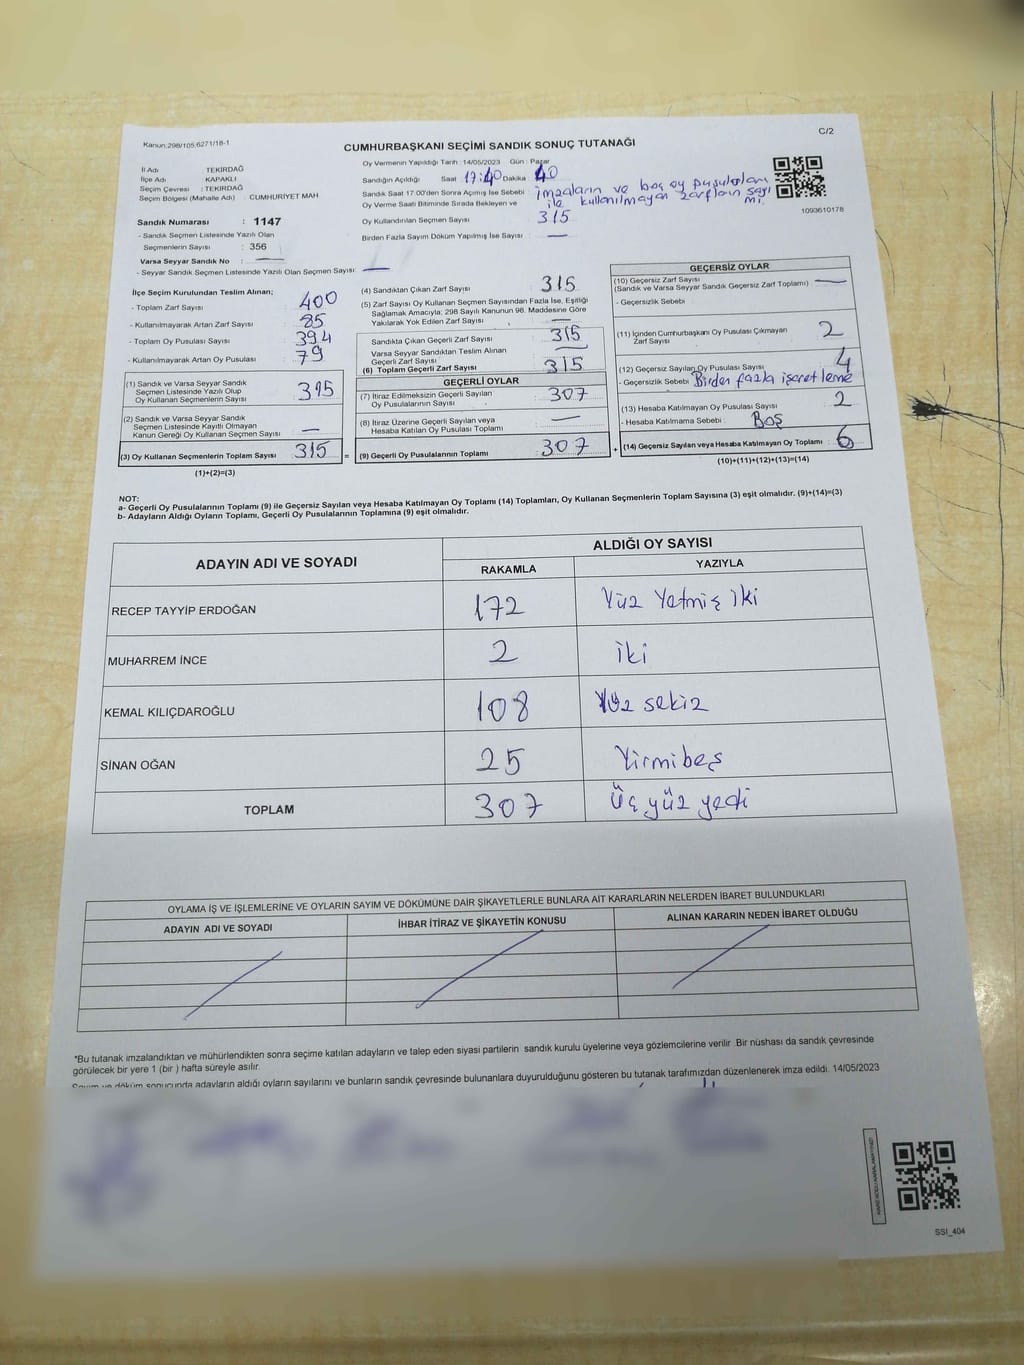 Kanun:298/105,6271/18-1
C/2
CUMHURBAŞKANI SEÇİMİ SANDIK SONUÇ TUTANAĞI
İl Adı : TEKİRDAĞ
İlçe Adı : KAPAKLI
Seçim Çevresi : TEKİRDAĞ
Seçim Bölgesi (Mahalle Adı) : CUMHURİYET MAH
Sandık Numarası : 1147
- Sandık Seçmen Listesinde Yazılı Olan
Seçmenlerin Sayısı : 356
Varsa Seyyar Sandık No : —
- Seyyar Sandık Seçmen Listesinde Yazılı Olan Seçmen Sayısı : —
Oy Vermenin Yapıldığı Tarih : 14/05/2023 Gün : Pazar
Sandığın Açıldığı Saat 17:40 Dakika : 40
Sandık Saat 17.00'den Sonra Açımış İse Sebebi : imzaların ve boş oy pusulaları
Oy Verme Saati Bitiminde Sırada Bekleyen ve ile kullanılmayan zarfların sayı
mı.
Oy Kullandırılan Seçmen Sayısı 315
Birden Fazla Sayım Döküm Yapılmış İse Sayısı : —
1093610178
İlçe Seçim Kurulundan Teslim Alınan;
- Toplam Zarf Sayısı : 400
- Kullanılmayarak Artan Zarf Sayısı : 85
- Toplam Oy Pusulası Sayısı : 394
- Kullanılmayarak Artan Oy Pusulası : 79
(1) Sandık ve Varsa Seyyar Sandık
Seçmen Listesinde Yazılı Olup
Oy Kullanan Seçmenlerin Sayısı : 315
(2) Sandık ve Varsa Seyyar Sandık
Seçmen Listesinde Kayıtlı Olmayan
Kanun Gereği Oy Kullanan Seçmen Sayısı : —
(3) Oy Kullanan Seçmenlerin Toplam Sayısı : 315 =
(1)+(2)=(3)
(4) Sandıktan Çıkan Zarf Sayısı : 315
(5) Zarf Sayısı Oy Kullanan Seçmen Sayısından Fazla İse, Eşitliği
Sağlamak Amacıyla; 298 Sayılı Kanunun 98. Maddesine Göre
Yakılarak Yok Edilen Zarf Sayısı : —
Sandıkta Çıkan Geçerli Zarf Sayısı : 315
Varsa Seyyar Sandıktan Teslim Alınan
Geçerli Zarf Sayısı : —
(6) Toplam Geçerli Zarf Sayısı : 315
GEÇERLİ OYLAR
(7) İtiraz Edilmeksizin Geçerli Sayılan
Oy Pusulalarının Sayısı : 307
(8) İtiraz Üzerine Geçerli Sayılan veya
Hesaba Katılan Oy Pusulası Toplamı : —
(9) Geçerli Oy Pusulalarının Toplamı : 307 +
GEÇERSİZ OYLAR
(10) Geçersiz Zarf Sayısı
(Sandık ve Varsa Seyyar Sandık Geçersiz Zarf Toplamı) : —
- Geçersizlik Sebebi :
(11) İçinden Cumhurbaşkanı Oy Pusulası Çıkmayan
Zarf Sayısı : 2
(12) Geçersiz Sayılan Oy Pusulası Sayısı : 4
- Geçersizlik Sebebi : Birden fazla işaretleme
(13) Hesaba Katılmayan Oy Pusulası Sayısı : 2
- Hesaba Katılmama Sebebi : Boş
(14) Geçersiz Sayılan veya Hesaba Katılmayan Oy Toplamı : 6
(10)+(11)+(12)+(13)=(14)
NOT:
a- Geçerli Oy Pusulalarının Toplamı (9) ile Geçersiz Sayılan veya Hesaba Katılmayan Oy Toplamı (14) Toplamları, Oy Kullanan Seçmenlerin Toplam Sayısına (3) eşit olmalıdır. (9)+(14)=(3)
b- Adayların Aldığı Oyların Toplamı, Geçerli Oy Pusulalarının Toplamına (9) eşit olmalıdır.
ADAYIN ADI VE SOYADI
ALDIĞI OY SAYISI
RAKAMLA YAZIYLA
RECEP TAYYİP ERDOĞAN 172 Yüz Yetmiş iki
MUHARREM İNCE 2 iki
KEMAL KILIÇDAROĞLU 108 Yüz sekiz
SİNAN OĞAN 25 Yirmibeş
TOPLAM 307 Üç yüz yedi
OYLAMA İŞ VE İŞLEMLERİNE VE OYLARIN SAYIM VE DÖKÜMÜNE DAİR ŞİKAYETLERLE BUNLARA AİT KARARLARIN NELERDEN İBARET BULUNDUKLARI
ADAYIN ADI VE SOYADI İHBAR İTİRAZ VE ŞİKAYETİN KONUSU ALINAN KARARIN NEDEN İBARET OLDUĞU
*Bu tutanak imzalandıktan ve mühürlendikten sonra seçime katılan adayların ve talep eden siyasi partilerin sandık kurulu üyelerine veya gözlemcilerine verilir. Bir nüshası da sandık çevresinde
görülecek bir yere 1 (bir ) hafta süreyle asılır.
Sayım ve döküm sonucunda adayların aldığı oyların sayılarını ve bunların sandık çevresinde bulunanlara duyurulduğunu gösteren bu tutanak tarafımızdan düzenlenerek imza edildi. 14/05/2023
SSI_404